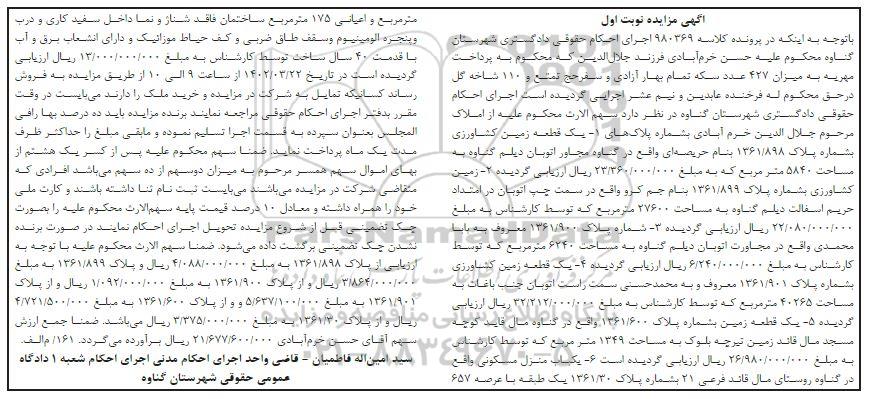 آگهی مزایده نوبت اول
باتوجه به اینکه در پرونده کلاسه ۹۸۰۳۶۹ اجرای احکام حقوقی دادگستری شهرستان
گناوه محکوم علیه حسن خرم‌آبادی فرزند جلال‌الدین که محکوم به پرداخت
مهریه به میزان ۴۲۷ عدد سکه تمام بهار آزادی و سفرحج تمتع و ۱۱۰ شاخه گل
درحق محکوم له فرخنده عابدین و نیم عشر اجرایی گردیده است. اجرای احکام
حقوقی دادگستری شهرستان گناوه در نظر دارد سهم الارث محکوم علیه از املاک
مرحوم جلال الدین خرم آبادی بشماره پلاک‌های ۱- یک قطعه زمین کشاورزی
بشماره پلاک ۱۳۶۱/۸۹۸ بنام حریصه‌ای واقع در گناوه مجاور اتوبان دیلم گناوه به
مساحت ۵۸۴۰ متر مربع که به مبلغ ۲۳/۳۶۰/۰۰۰/۰۰۰ ریال ارزیابی گردیده ۲- زمین
کشاورزی بشماره پلاک ۱۳۶۱/۸۹۹ بنام جم کرو واقع در سمت چپ اتوبان در امتداد
حریم اسفالت دیلم گناوه به مساحت ۲۷۶۰۰ مترمربع که توسط کارشناس به مبلغ
۲۲/۰۸۰/۰۰۰/۰۰۰ ریال ارزیابی گردیده ۳- شماره پلاک ۱۳۶۱/۹۰۰ معروف به بابا
محمدی واقع در مجاورت اتوبان دیلم گناوه به مساحت ۶۲۴۰ مترمربع که توسط
کارشناس به مبلغ ۶/۲۴۰/۰۰۰/۰۰۰ ریال ارزیابی گردیده ۴- یک قطعه زمین کشاورزی
بشماره پلاک ۱۳۶۱/۹۰۱ معروف و به محمدحسنی سمت راست اتوبان جنب باغات به
مساحت ۴۰۲۶۵ مترمربع که توسط کارشناس به مبلغ ۳۲/۲۱۲/۰۰۰/۰۰۰ ریال ارزیابی
گردیده ۵- یک قطعه زمین بشماره پلاک ۱۳۶۱/۶۰۰ واقع در گناوه مال قاید کوچه
مسجد مال قائد زمین تیرچه بلوک به مساحت ۱۳۴۹ متر مربع که توسط کارشناس
به مبلغ ۲۶/۹۸۰/۰۰۰/۰۰۰ ریال ارزیابی گردیده است ۶- یکباب منزل مسکونی واقع
در گناوه روستای مال قائد فرعی ۲۱ بشماره پلاک ۱۳۶۱/۳۰ یک طبقه با عرصه ۶۵۷
مترمربع و اعیانی ۱۷۵ مترمربع ساختمان فاقد شناژ و نما داخل سفید کاری و درب
وپنجره الومینیوم وسقف طاق ضربی و کف حیاط موزائیک و دارای انشعاب برق و آب
با قدمت ۴۰ سال ساخت توسط کارشناس به مبلغ ۱۳/۰۰۰/۰۰۰/۰۰۰ ریال ارزیابی
گردیده است در تاریخ ۱۴۰۲/۰۳/۲۲ از ساعت ۹ الی ۱۰ از طریق مزایده به فروش
رساند کسانیکه تمایل به شرکت در مزایده و خرید ملک را دارند می‌بایست در وقت
مقرر بدفتر اجرای احکام حقوقی مراجعه نمایند برنده مزایده باید ده درصد بها رافی
المجلس بعنوان سپرده به قسمت اجرا تسلیم نموده و مابقی مبلغ را حداکثر ظرف
مدت یک ماه پرداخت نماید. ضمنا سهم محکوم علیه پس از کسر یک هشتم از
بهای اموال سهم همسر مرحوم به میزان دوسهم از ده سهم می‌باشد افرادی که
متقاضی شرکت در مزایده می‌باشند می‌بایست ثبت نام ثنا داشته باشند و کارت ملی
خود را همراه داشته و معادل ۱۰ درصد قیمت پایه سهم‌الارث محکوم علیه را بصورت
چک تضمینی قبل از شروع مزایده تحویل اجرای احکام نمایند در صورت برنده
نشدن چک تضمینی برگشت داده می‌شود. ضمنا سهم الارث محکوم علیه با توجه به
ارزیابی از پلاک ۱۳۶۱/۸۹۸ به مبلغ ۴/۰۸۸/۰۰۰/۰۰۰ ریال و پلاک ۱۳۶۱/۸۹۹ به مبلغ
۳/۸۶۴/۰۰۰/۰۰۰ ریال و از پلاک ۱۳۶۱/۹۰۰ به مبلغ ۱/۰۹۲/۰۰۰/۰۰۰ ریال و از پلاک
۱۳۶۱/۹۰۱ به مبلغ ۵/۶۳۷/۱۰۰/۰۰۰ و و از پلاک ۱۳۶۱/۶۰۰ به مبلغ ۴/۷۲۱/۵۰۰/۰۰۰
ریال و از پلاک ۱۳۶۱/۳۰ به مبلغ ۳/۳۷۵/۰۰۰/۰۰۰ ریال می‌باشد. ضمنا جمع ارزش
سهم آقای حسن خرم‌آبادی ۲۱/۶۷۷/۶۰۰/۰۰۰ ریال برآورده می‌گردد. ۱۶۱/ م‌الف.
سید امین‌اله فاطمیان - قاضی واحد اجرای احکام مدنی اجرای احکام شعبه ۱ دادگاه
عمومی حقوقی شهرستان گناوه